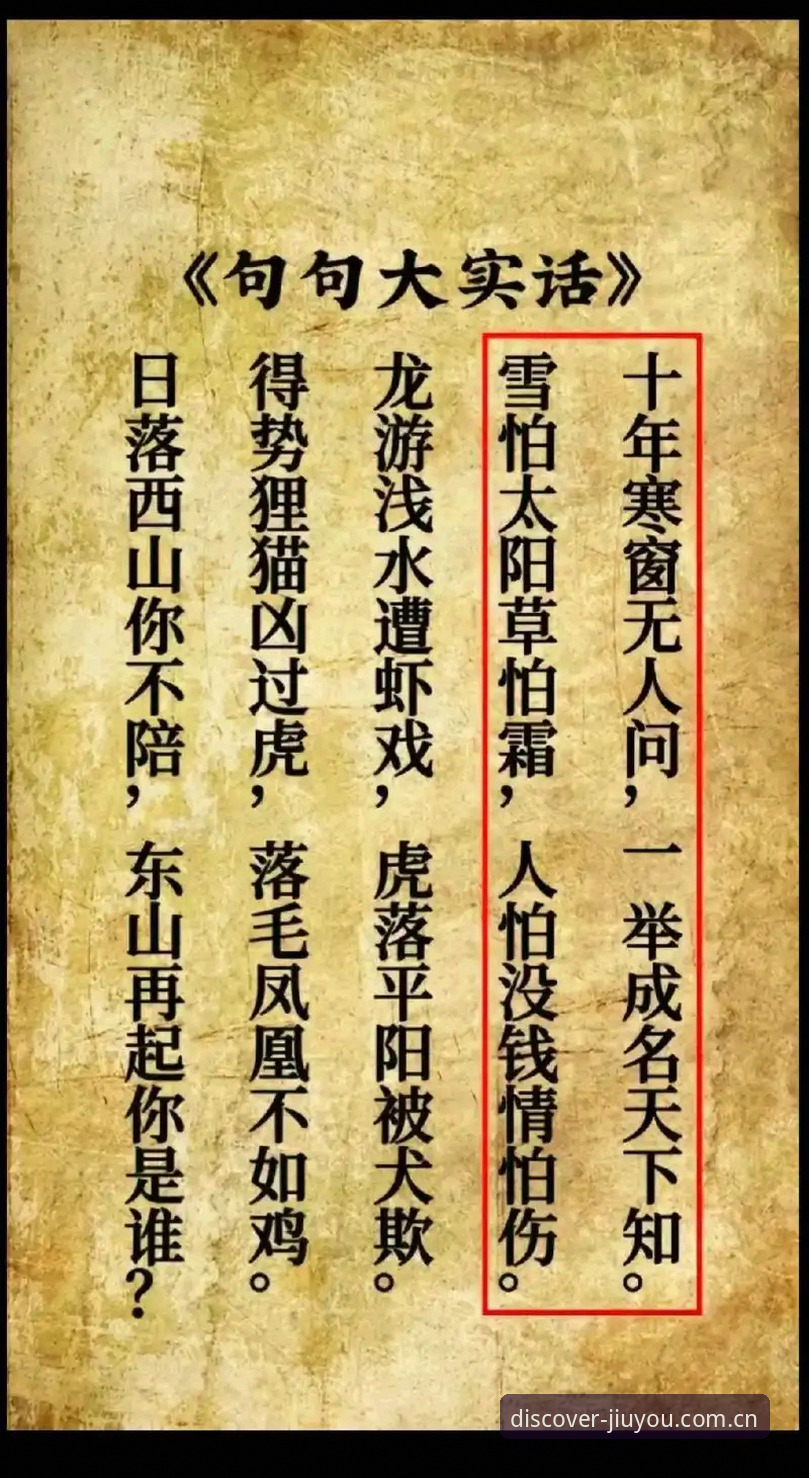 《句句大实话》
十年寒窗无人问，一举成名天下知。
雪怕太阳草怕霜，人怕没钱情怕伤。
龙游浅水遭虾戏，虎落平阳被犬欺。
得势狸猫凶过虎，落毛凤凰不如鸡。
日落西山你不陪，东山再起你是谁？
discover-jiuyou.com.cn